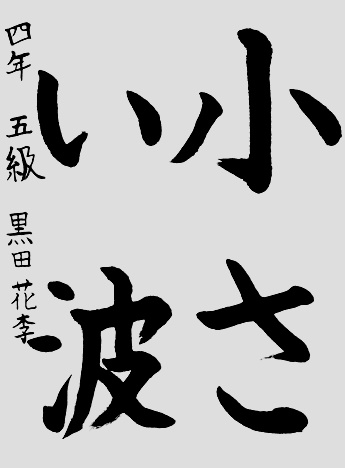 小さ
い波
四年 五級 黒田花李